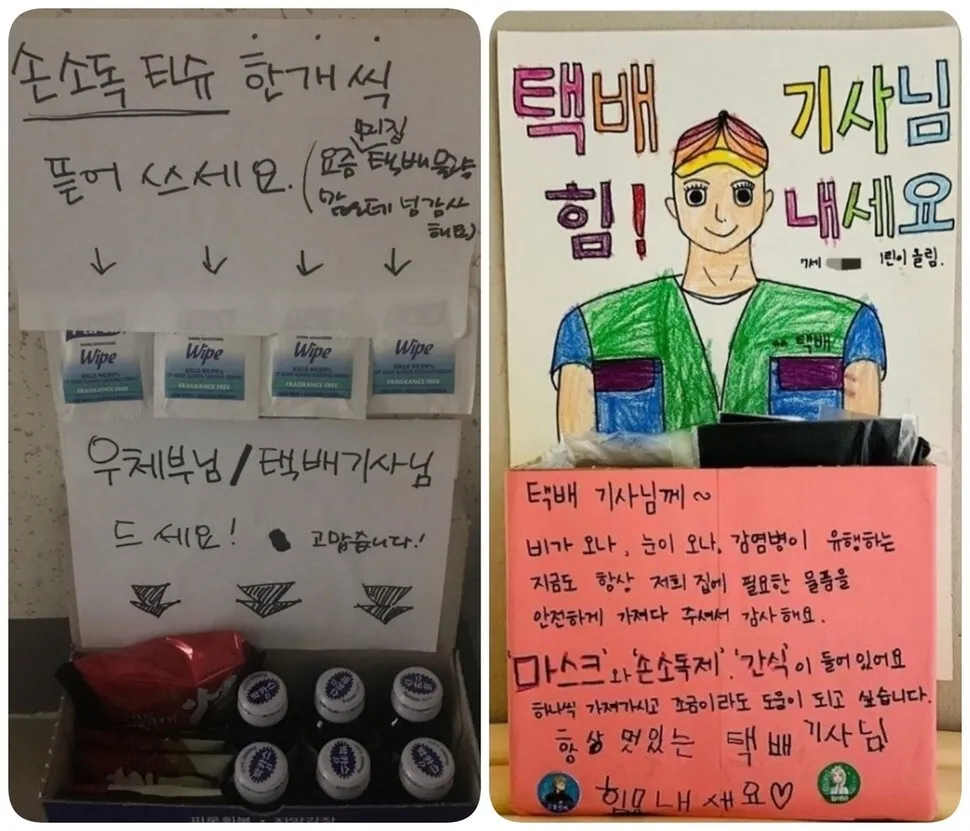 손소독 티슈 한개씩
뜯어 쓰세요.
(요즘 택배물량
많은데 넘 감사
해요)
Wipe
KILLS 99.99%
FRAGRANCE FREE
Wipe
KILLS 99.99%
FRAGRANCE FREE
Wipe
KILLS 99.99%
FRAGRANCE FREE
Wipe
KILLS 99.99%
FRAGRANCE FREE
우체부님/택배기사님
드세요! 고맙습니다!
택배 기사님
힘! 내세요
7세 어린이 올림.
택배
택배 기사님께~
비가 오나, 눈이 오나, 감염병이 유행하는
지금도 항상 저희 집에 필요한 물품을
안전하게 가져다 주셔서 감사해요.
'마스크'와 '손소독제', '간식'이 들어 있어요
하나씩 가져가시고 조금이라도 도움이 되고 싶습니다.
항상 멋있는 택배 기사님
힘 내세요♡